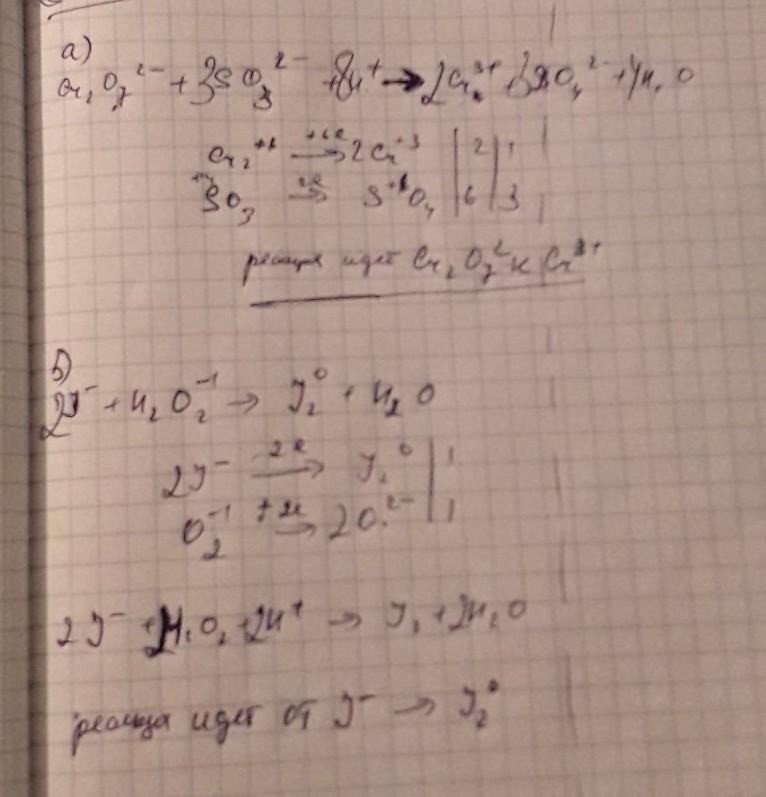 а)
Cr₂O₇²⁻ + 3SO₃²⁻ + 8H⁺ → 2Cr³⁺ + 3SO₄²⁻ + 4H₂O
Cr₂ →2Cr⁺³ | 2 | 1
SO₃ 2e → S O₄ | 6 | 3
реакция идет Cr₂O₇² к Cr³⁺
б)
2J⁻ + H₂O₂⁻¹ → J₂⁰ + H₂O
2J⁻ -2e → J₂⁰ | 1
O₂⁻¹ +2e → 2O²⁻ | 1
2J⁻ + H₂O₂ + 2H⁺ → J₂ + 2H₂O
реакция идет от J⁻ → J₂⁰